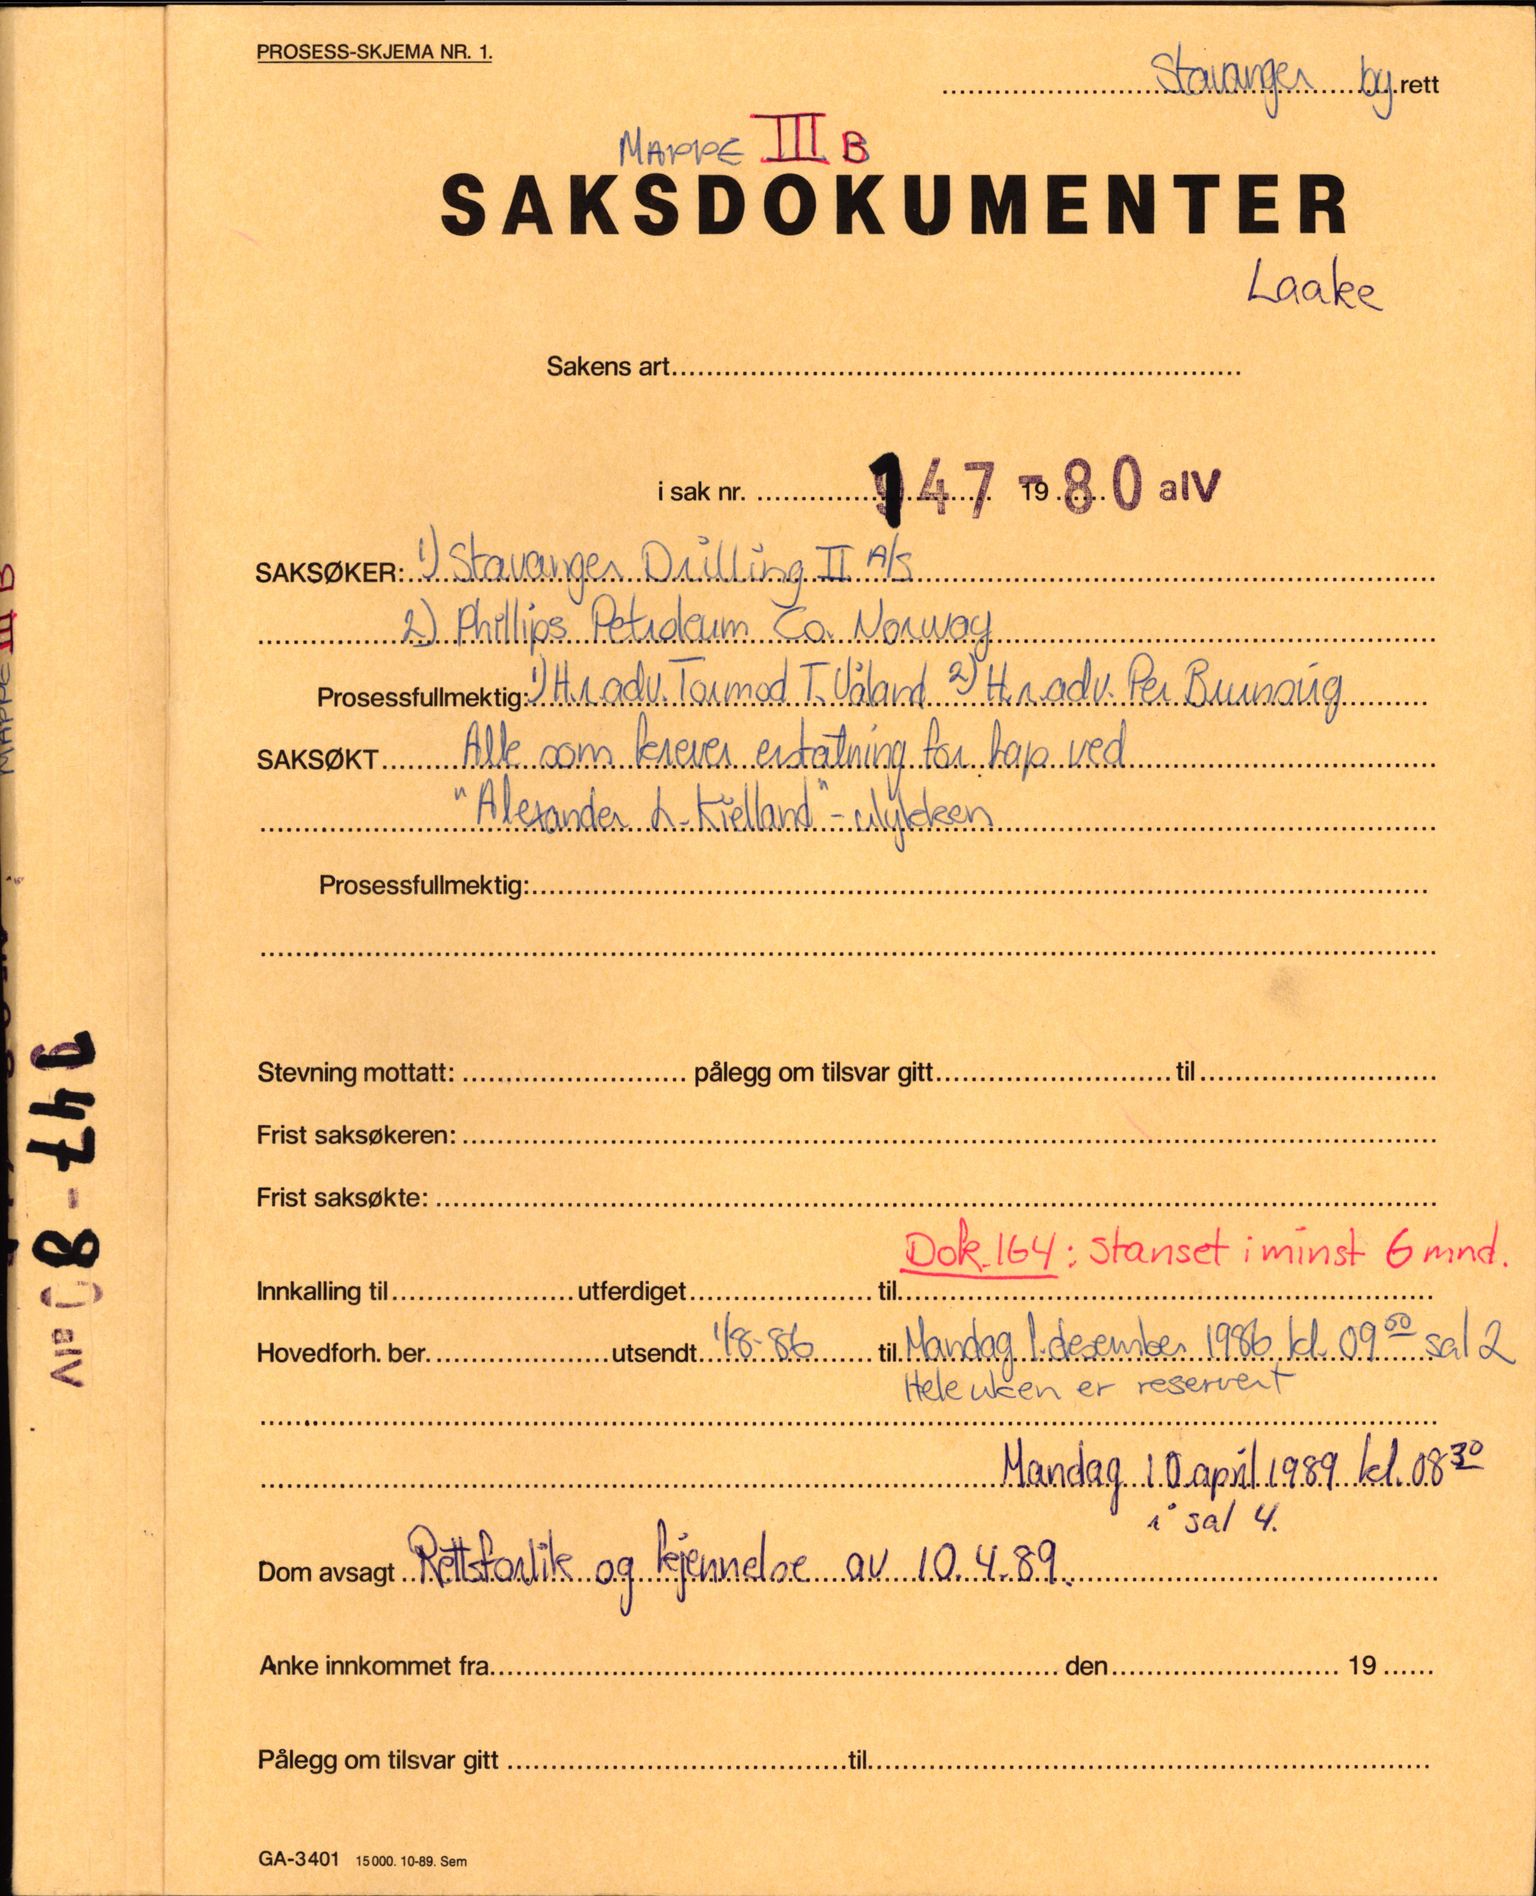 PROSESS-SKJEMA NR. 1.
Stavanger by rett
MAPPE III B
SAKSDOKUMENTER
Laake
Sakens art
i sak nr. 147 - 19 80 aIV
SAKSØKER: 1) Stavanger Drilling II A/S
2) Phillips Petroleum Co. Norway
Prosessfullmektig: 1) H.r.adv. Tormod T. Våland 2) H.r.adv. Per Brunsvig
SAKSØKT Alle som krever erstatning for tap ved
"Alexander L. Kielland" - ulykken
Prosessfullmektig:
Stevning mottatt: pålegg om tilsvar gitt til
Frist saksøkeren:
Frist saksøkte:
Dok. 164 : Stanset i minst 6 mnd.
Innkalling til utferdiget til
Hovedforh. ber. utsendt 1/8-86 til Mandag 1. desember 1986 kl. 09 00 sal 2
Hele uken er reservert
Mandag 10 april 1989 kl. 08 30
i sal 4.
Dom avsagt Rettsforlik og kjennelse av 10.4.89.
Anke innkommet fra den 19
Pålegg om tilsvar gitt til
GA-3401 15000. 10-89. Sem
147-80 aIV
MAPPE III B